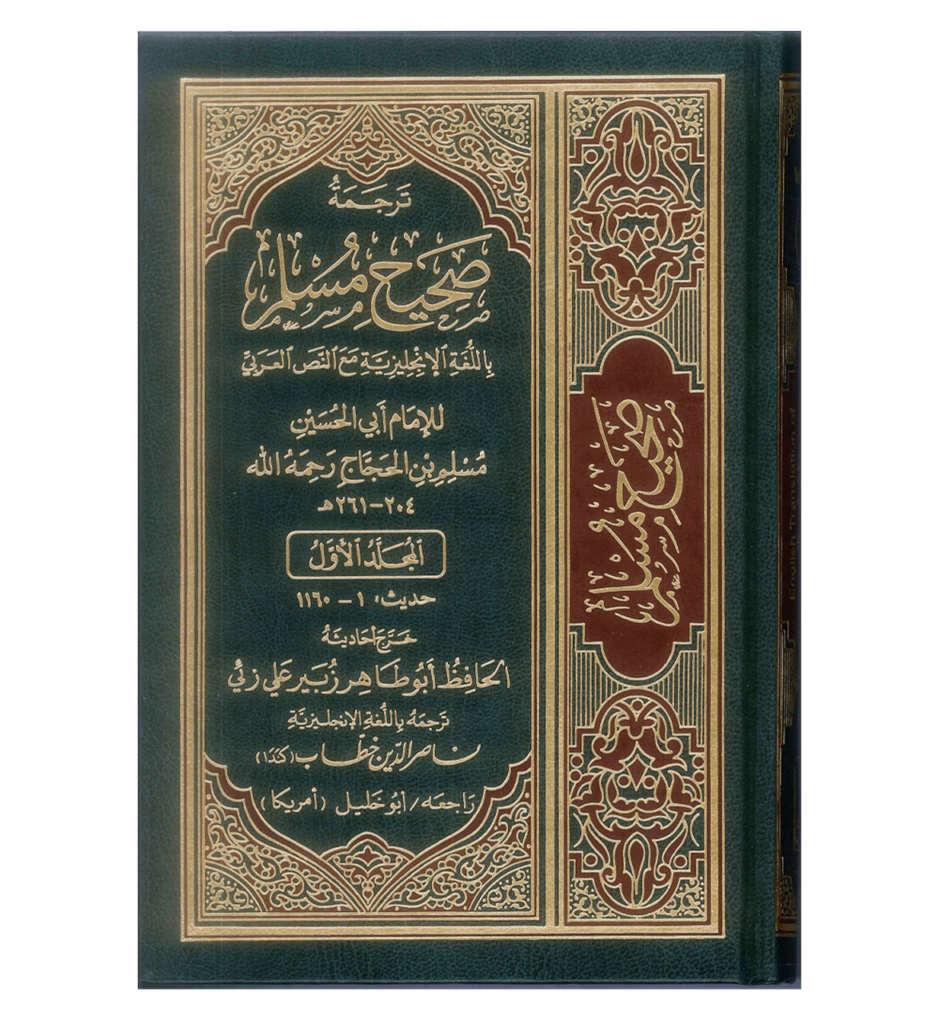 تَرجَمَةُ
صَحِيحِ مُسْلِمٍ
بِاللُّغَةِ الإِنْجِلِيزِيَّةِ مَعَ النَّصِ العَرَبِيِّ
لِلإمَامِ أَبي الحُسَيْنِ
مُسْلِمِ بْنِ الحَجَّاجِ رَحِمَهُ الله
٢٠٤-٢٦١هـ
المُجَلَّدُ الأَوَّلُ
حديث: ١ - ١١٦٠
خَرَّجَ أحَادِيثَهُ
الحَافِظُ أَبُو طَاهِر زُبَير عَلي زَئي
تَرجَمَهُ بِاللُّغَةِ الإنجليزيَّةِ
ناصر الدِّين خطَّاب (كَنَدَا)
رَاجعَه / أبُو خَليل (أمريكا)
صَحِيح مُسْلِم
English Translation of